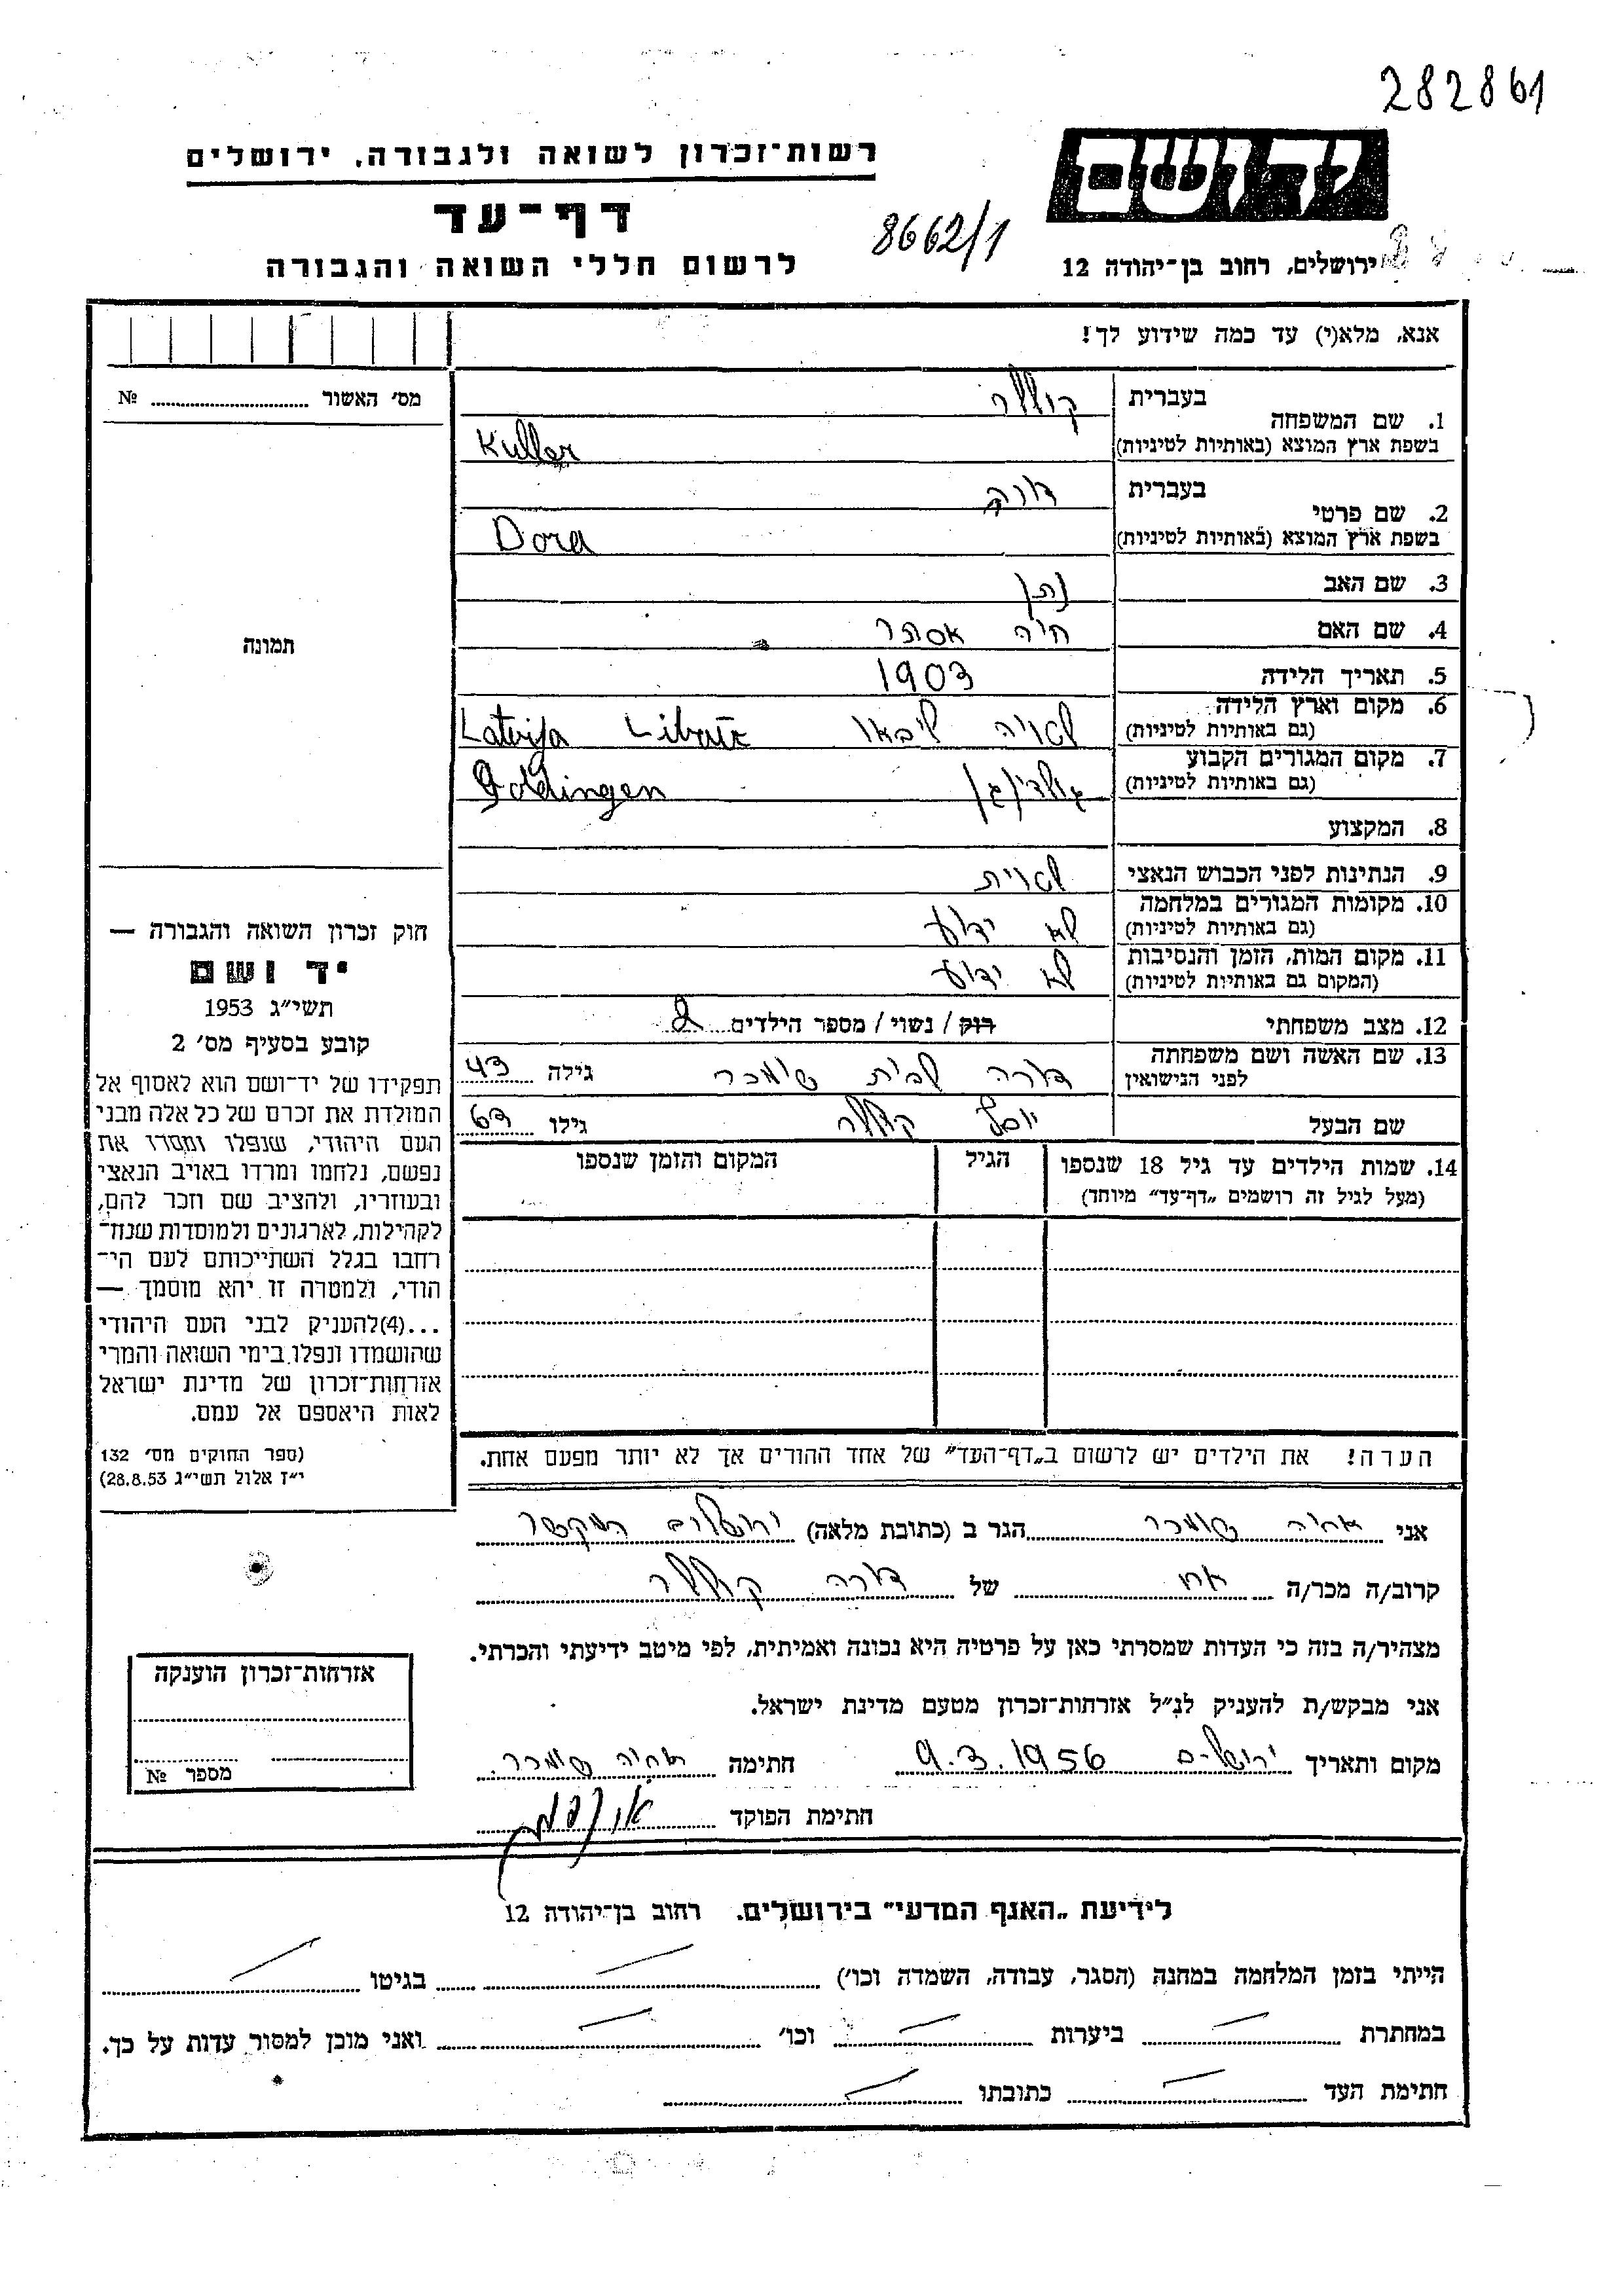 282861
יד ושם
רשות־זכרון לשואה ולגבורה, ירושלים
דף־עד
8662/1
לרשום חללי השואה והגבורה
ירושלים, רחוב בן־יהודה 12
אנא, מלא(י) עד כמה שידוע לך!
מס׳ האשור № 
תמונה
חוק זכרון השואה והגבורה —
יד ושם
תשי״ג 1953
קובע בסעיף מס׳ 2
תפקידו של יד־ושם הוא לאסוף אל
המולדת את זכרם של כל אלה מבני
העם היהודי, שנפלו ומסרו את
נפשם, נלחמו ומרדו באויב הנאצי
ובעוזריו, ולהציב שם וזכר להם,
לקהילות, לארגונים ולמוסדות שנח־
רבו בגלל השתייכותם לעם הי־
הודי, ולמטרה זו יהא מוסמך —
...(4)להעניק לבני העם היהודי
שהושמדו ונפלו בימי השואה והמרי
אזרחות־זכרון של מדינת ישראל
לאות היאספם אל עמם.
(ספר החוקים מס׳ 132
י״ז אלול תשי״ג 28.8.53)
1. שם המשפחה בעברית קולר
בשפת ארץ המוצא (באותיות לטיניות) Kuller
2. שם פרטי בעברית דורה
בשפת ארץ המוצא (באותיות לטיניות) Dora
3. שם האב נתן
4. שם האם חיה אסתר
5. תאריך הלידה 1903
6. מקום וארץ הלידה (גם באותיות לטיניות) לטויה ליבאו Latvija
7. מקום המגורים הקבוע (גם באותיות לטיניות) גולדינגן Goldingen
8. המקצוע
9. הנתינות לפני הכבוש הנאצי לטוית
10. מקומות המגורים במלחמה (גם באותיות לטיניות) לא ידוע
11. מקום המות, הזמן והנסיבות (המקום גם באותיות לטיניות) לא ידוע
12. מצב משפחתי רוק / נשוי / מספר הילדים 2
13. שם האשה ושם משפחתה לפני הנישואין דורה לבית שומכר גילה 43
שם הבעל יוסף קולר גילו 63
14. שמות הילדים עד גיל 18 שנספו הגיל המקום והזמן שנספו
(מעל לגיל זה רושמים „דף־עד״ מיוחד)
הערה! את הילדים יש לרשום ב„דף־העד״ של אחד ההורים אך לא יותר מפעם אחת.
אני שומכר הגר ב (כתובת מלאה) ירושלים
קרוב/ה מכר/ה אח של דורה קולר
מצהיר/ה בזה כי העדות שמסרתי כאן על פרטיה היא נכונה ואמיתית, לפי מיטב ידיעתי והכרתי.
אני מבקש/ת להעניק לנ״ל אזרחות־זכרון מטעם מדינת ישראל.
מקום ותאריך ירושלים 9.3.1956 חתימה שומכר
חתימת הפוקד
אזרחות־זכרון הוענקה
מספר №
לידיעת „האגף המדעי״ בירושלים. רחוב בן־יהודה 12
הייתי בזמן המלחמה במחנה (הסגר, עבודה, השמדה וכו׳) בגיטו
במחתרת ביערות וכו׳ ואני מוכן למסור עדות על כך.
חתימת העד כתובתו